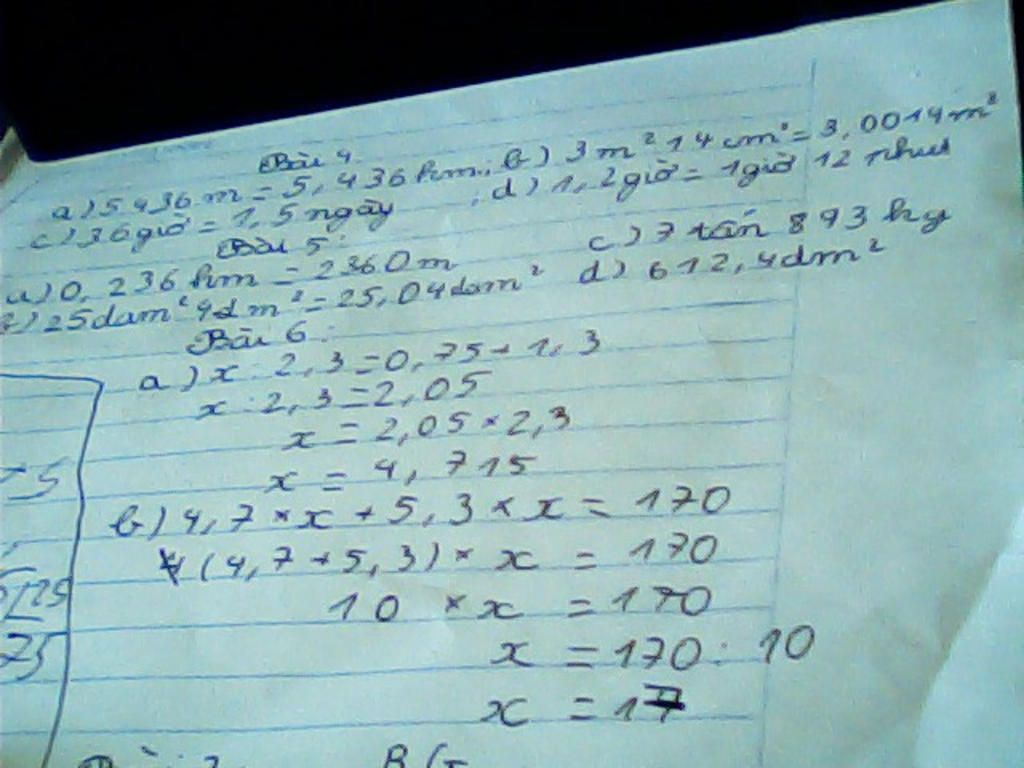 Bài 4
a) 5436m = 5,436 km; b) 3m² 14cm² = 3,0014m²
c) 36 giờ = 1,5 ngày ; d) 1,2 giờ = 1 giờ 12 phút
Bài 5:
a) 0,236 km = 2360m c) 7 tấn 893 kg
b) 25dam² 4dm² = 25,04dam² d) 612,4dm²
Bài 6:
a) x : 2,3 = 0,75 + 1,3
x : 2,3 = 2,05
x = 2,05 × 2,3
x = 4,715
b) 4,7 × x + 5,3 × x = 170
(4,7 + 5,3) × x = 170
10 × x = 170
x = 170 : 10
x = 17
5
25
75